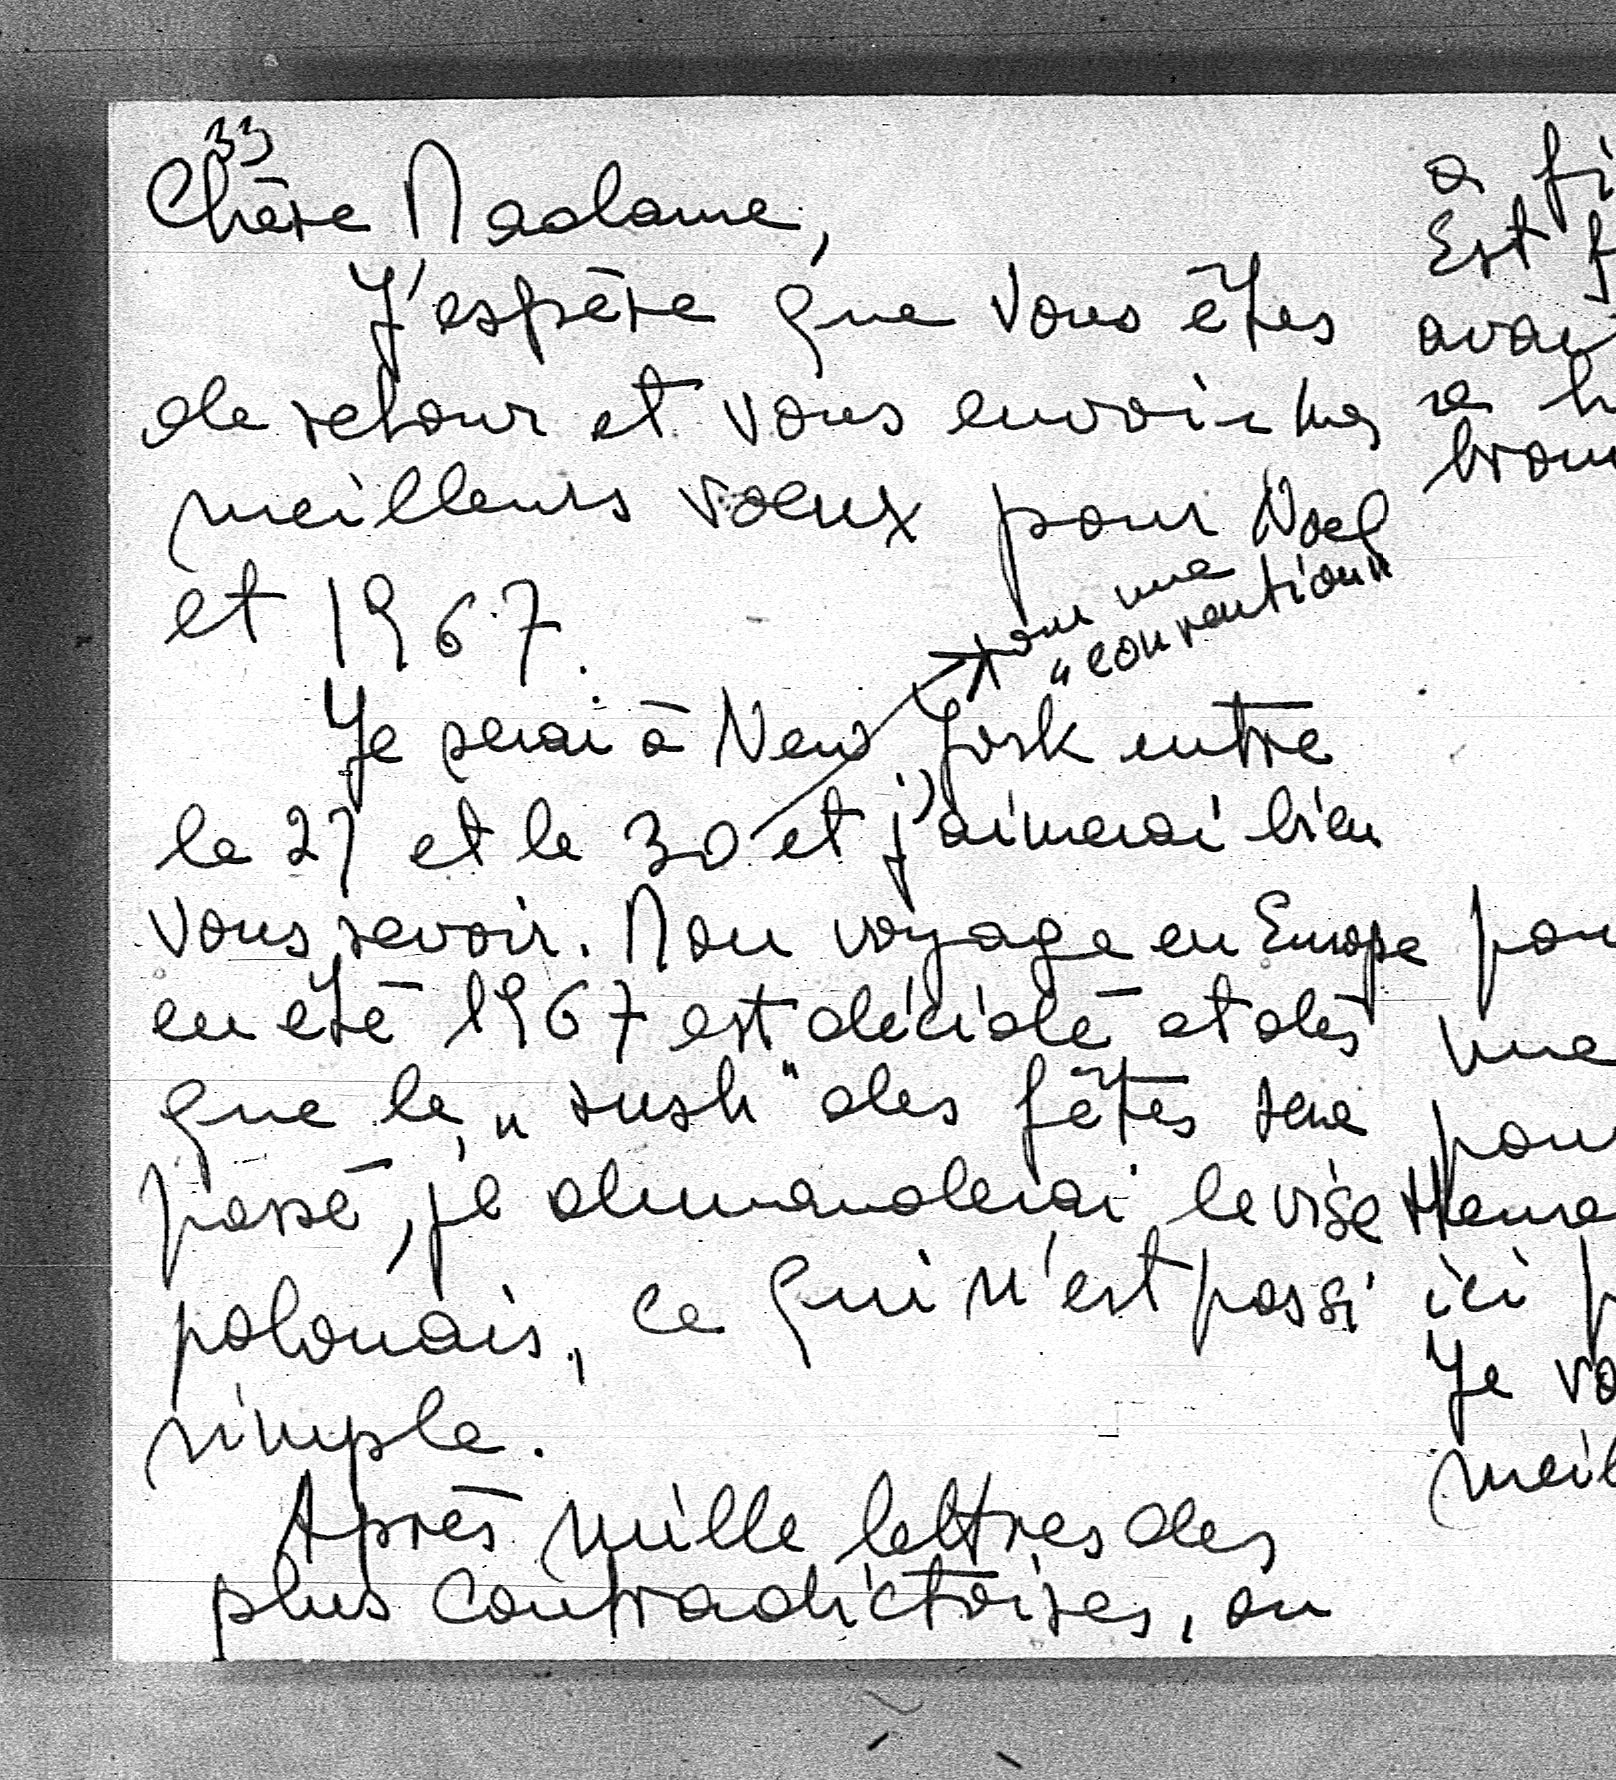 33
Chère Madame,
J'espère que vous êtes
de retour et vous envoie mes
meilleurs voeux pour Noel
et 1967.
Je serai à New York entre
le 27 et le 30 et j'aimerai bien
pour une
"convention"
vous revoir. Mon voyage en Europe
en été 1967 est décidé et dès
que le "rush" des fêtes sera
passé, je demanderai le vise
polonais, ce qui n'est pas si
simple.
Après mille lettres des
plus contradictoires, on
à fi
Est f
avai
pou
une
pour
ici p
Je vo
meil